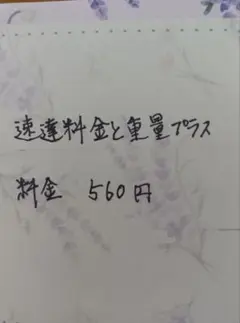 速達料金と重量プラス
料金 560円